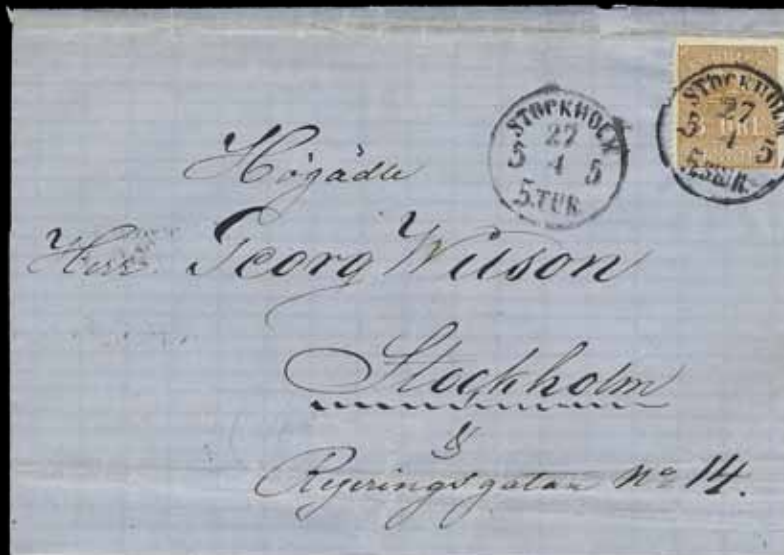 STOCKHOLM
27
5 1 5
5.TUR.
STOCKHOLM
27
5 1 5
5.TUR.
ÖRE
Högädle
Herr Georg Wilson
Stockholm
Regeringsgatan No 14.